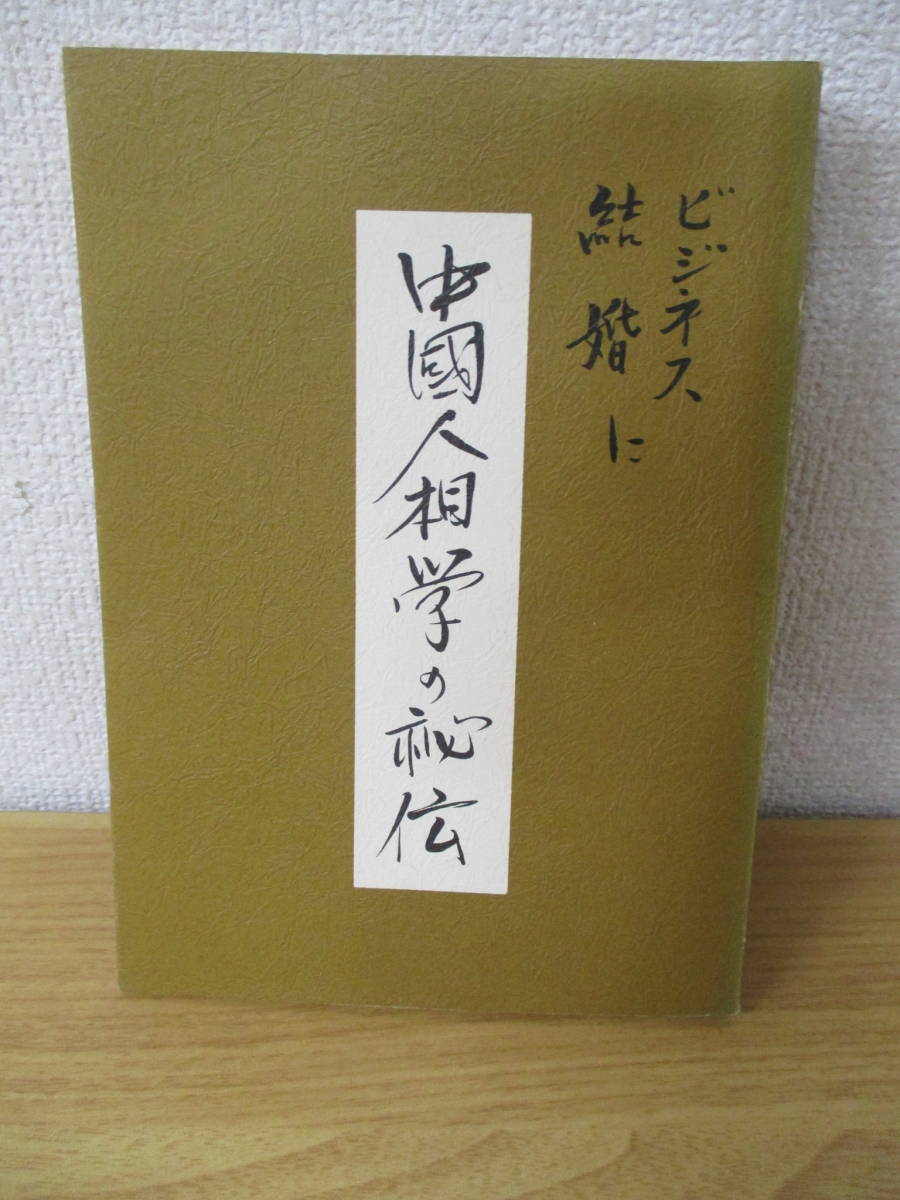 ビジネス
結婚に
中國人相学の秘伝